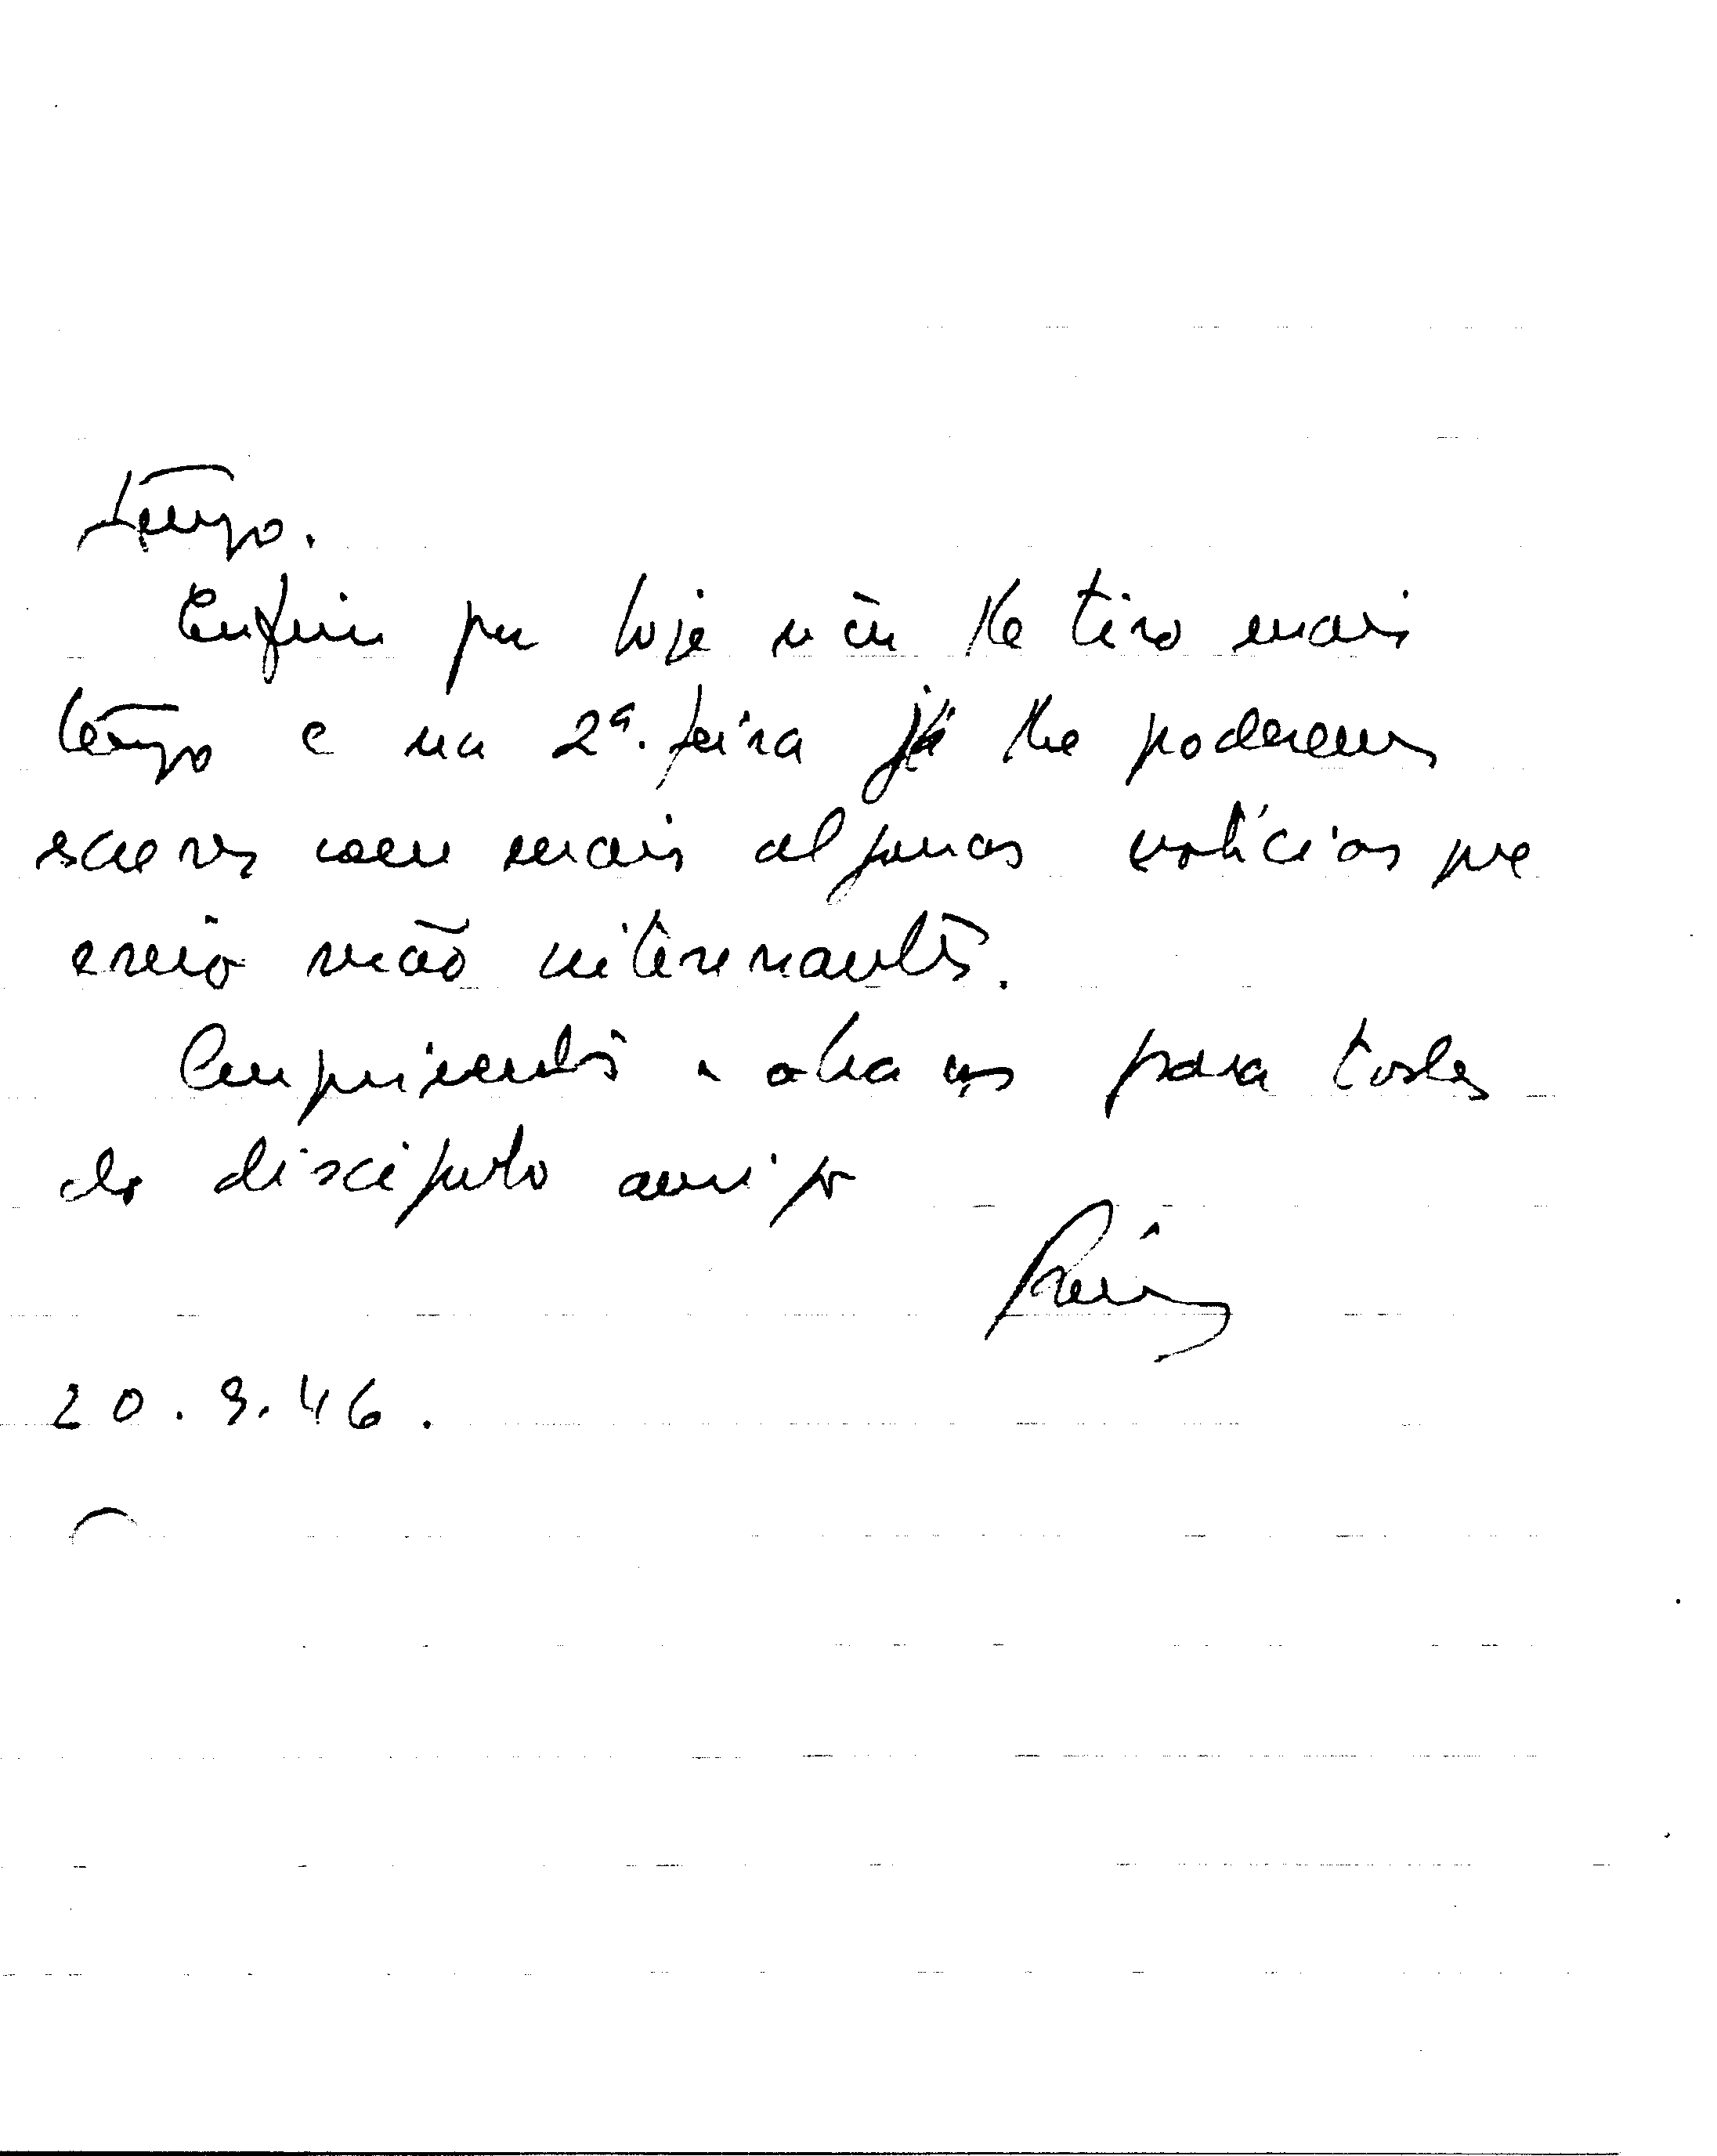 tempo.
Enfim por hoje não lhe tiro mais
tempo e na 2ª. feira já lhe poderemos
escrever com mais algumas notícias que
creio serão interessantes.
Cumprimentos e abraços para todos
do discípulo amigo
20.9.46.